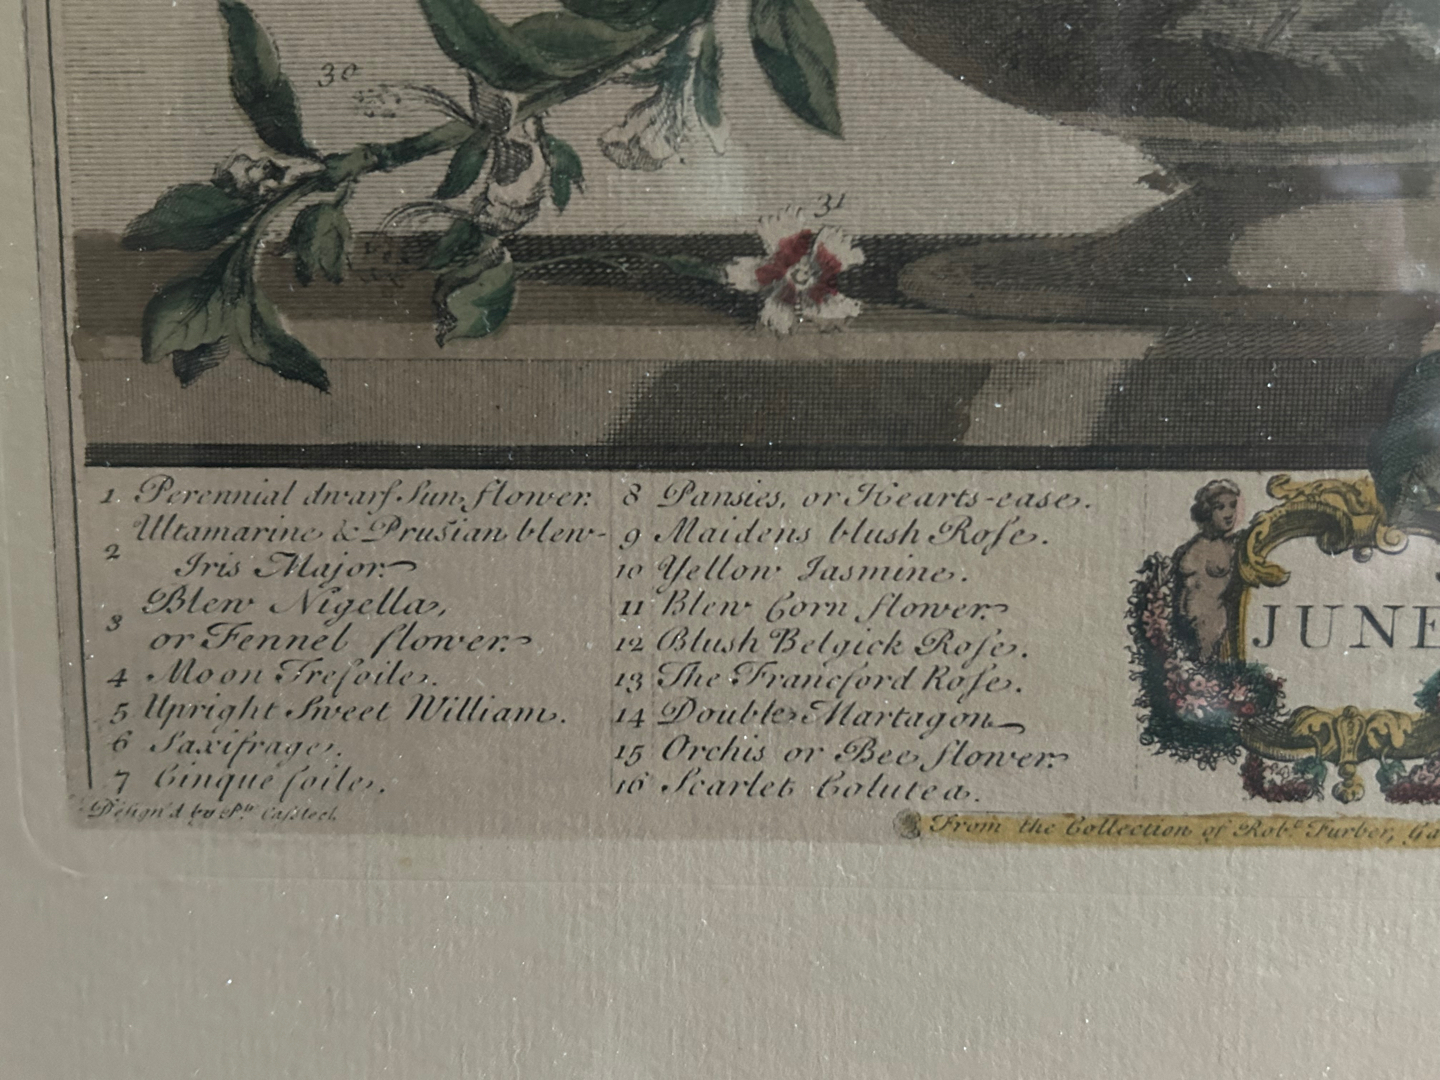 30
31
1. Perennial dwarf Sun flower.
2 Ultamarine & Prusian blew
Iris Major.
3 Blew Nigella,
or Fennel flower.
4 Moon Trefoile.
5 Upright Sweet William.
6 Saxifrage.
7 Cinque foile.
8 Pansies, or Hearts-ease.
9 Maidens blush Rose.
10 Yellow Jasmine.
11 Blew Corn flower.
12 Blush Belgick Rose.
13 The Francford Rose.
14 Double Martagon
15 Orchis or Bee flower.
16 Scarlet Colutea.
JUNE
Design'd by Pr. Casteels
From the Collection of Robt. Furber, Ga